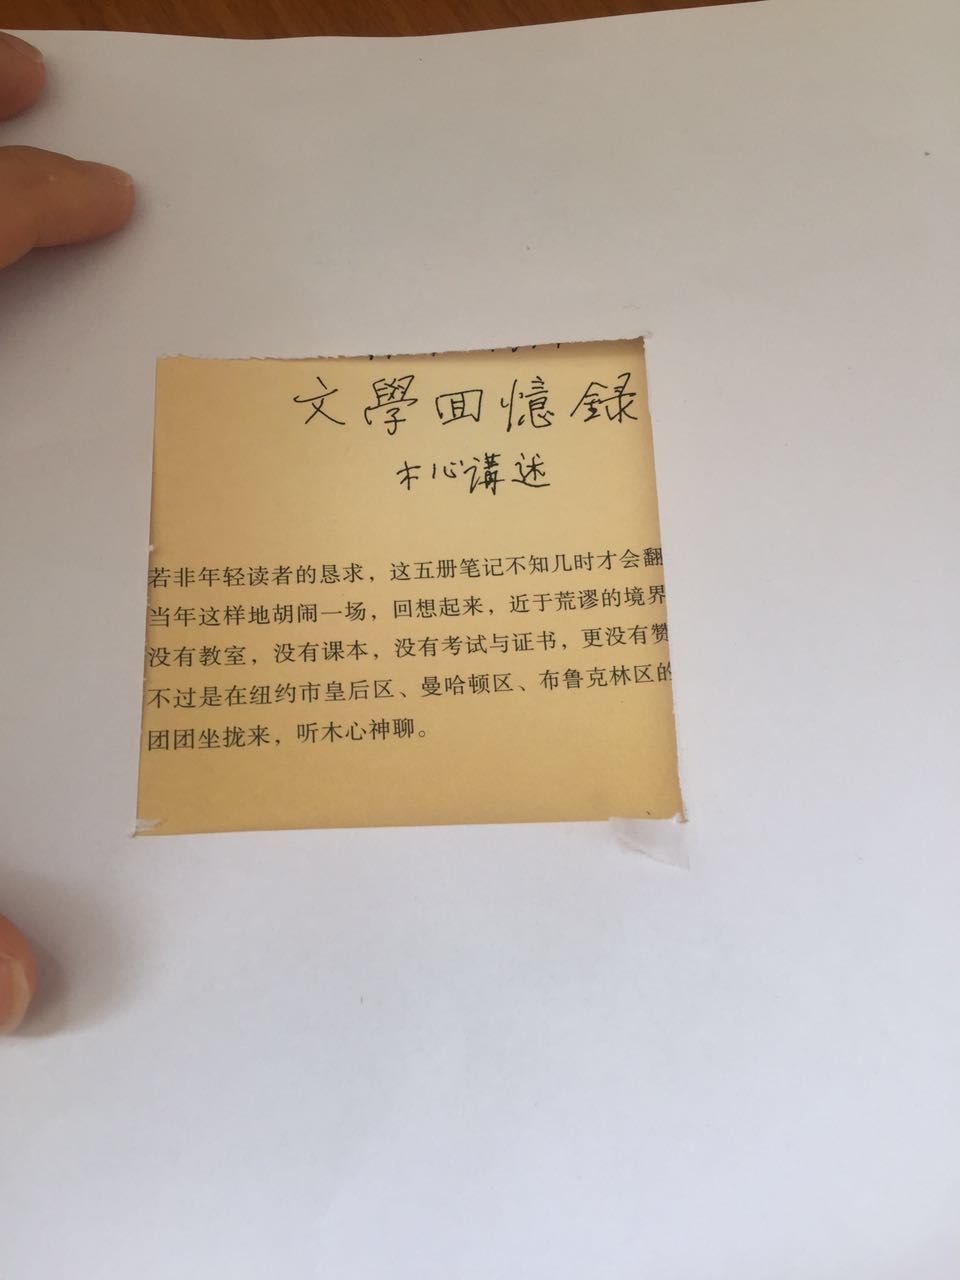 文學回憶録
木心講述
若非年轻读者的恳求，这五册笔记不知几时才会翻
当年这样地胡闹一场，回想起来，近于荒谬的境界
没有教室，没有课本，没有考试与证书，更没有赞
不过是在纽约市皇后区、曼哈顿区、布鲁克林区的
团团坐拢来，听木心神聊。